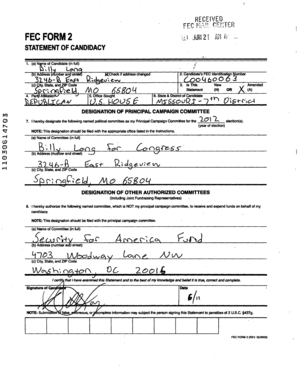 RECEIVED
FEC MAIL CENTER
FEC FORM 2
STATEMENT OF CANDIDACY
1. (a) Name of Candidate (in full)
Billy Long
(b) Address (number and street) Check if address changed 2. Candidate's FEC Identification Number
3246-B East Ridgeview C00460063
(c) City, State, and ZIP Code 3. Is This Statement New (N) OR X Amended (A)
Springfield, MO 65804
4. Party Affiliation 5. Office Sought 6. State & District of Candidate
REPUBLICAN U.S. HOUSE MISSOURI - 7th District
DESIGNATION OF PRINCIPAL CAMPAIGN COMMITTEE
7. I hereby designate the following named political committee as my Principal Campaign Committee for the 2012 election(s).
(year of election)
NOTE: This designation should be filed with the appropriate office listed in the instructions.
(a) Name of Committee (in full)
Billy Long for Congress
(b) Address (number and street)
3246-B East Ridgeview
(c) City, State, and ZIP Code
Springfield, Mo 65804
DESIGNATION OF OTHER AUTHORIZED COMMITTEES
(Including Joint Fundraising Representatives)
8. I hereby authorize the following named committee, which is NOT my principal campaign committee, to receive and expend funds on behalf of my
candidacy.
NOTE: This designation should be filed with the principal campaign committee.
(a) Name of Committee (in full)
Security for America Fund
(b) Address (number and street)
4703 Woodway Lane NW
(c) City, State, and ZIP Code
Washington, DC 20016
I certify that I have examined this Statement and to the best of my knowledge and belief it is true, correct and complete.
Signature of Candidate Date
6/11
NOTE: Submission of false, erroneous, or incomplete information may subject the person signing this Statement to penalties of 2 U.S.C. §437g.
FEC FORM 2
11030614703